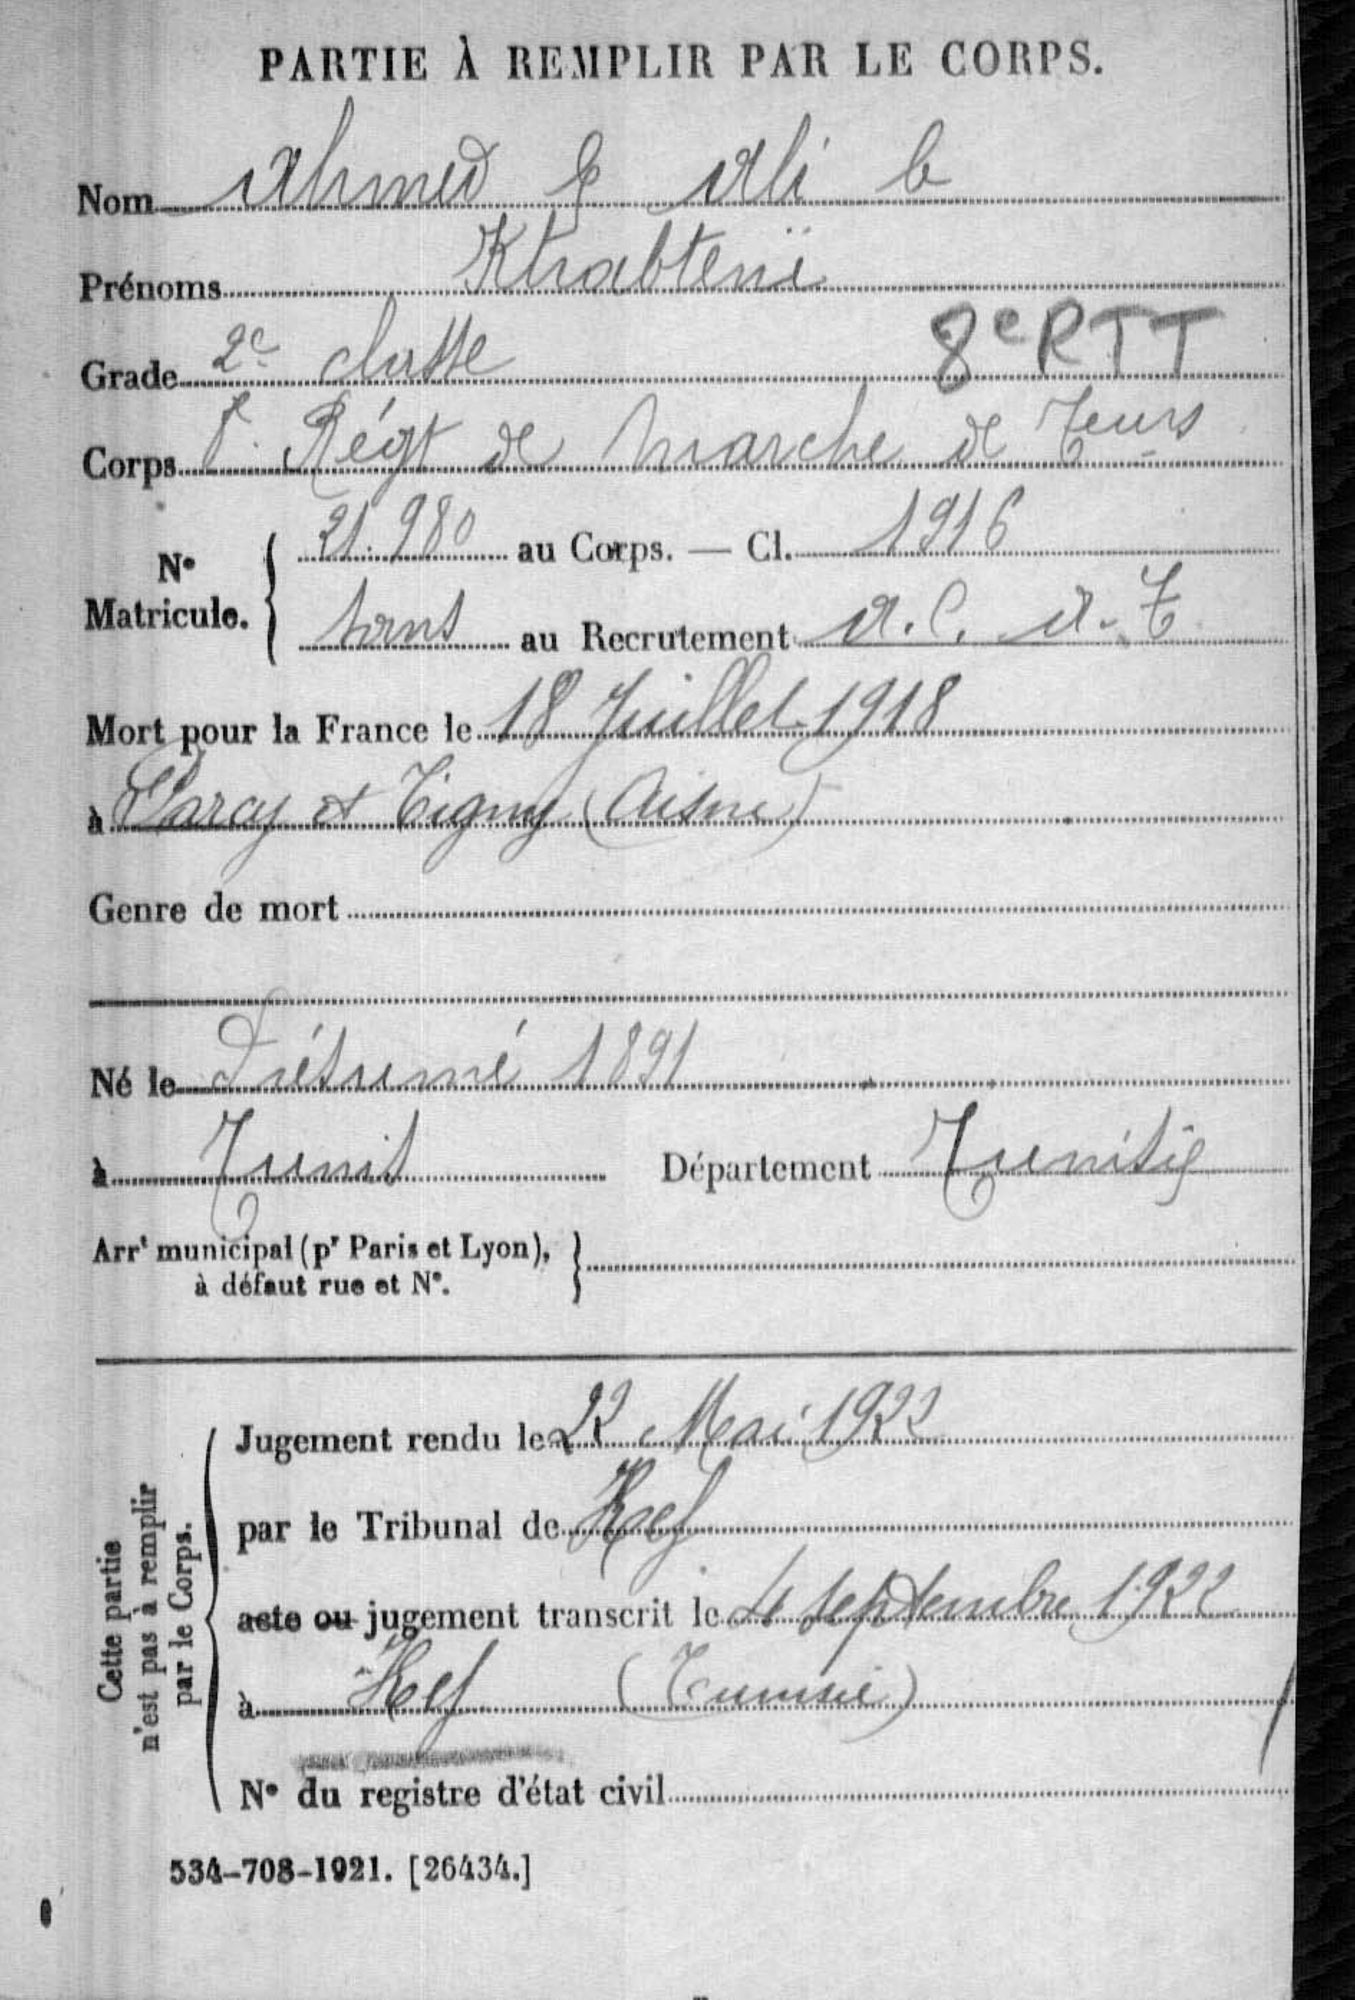 PARTIE À REMPLIR PAR LE CORPS.
Nom Ahmed b Ali b
Prénoms Ktrabteni
Grade 2e classe 8e RTT
Corps 8. Régt de marche de Teurs
N° Matricule. 21.980 au Corps. — Cl. 1916
sans au Recrutement A.C. A.T
Mort pour la France le 18 Juillet 1918
à Parcy et Tigny (Aisne)
Genre de mort
Né le Présumé 1891
à Tunis Département Tunisie
Arrt municipal (pr Paris et Lyon),
à défaut rue et N°.
Cette partie
n'est pas à remplir
par le Corps.
Jugement rendu le 22 Mai 1922
par le Tribunal de Kef
acte ou jugement transcrit le 4 septembre 1922
à Kef (Tunisie)
N° du registre d'état civil
534-708-1921. [26434.]